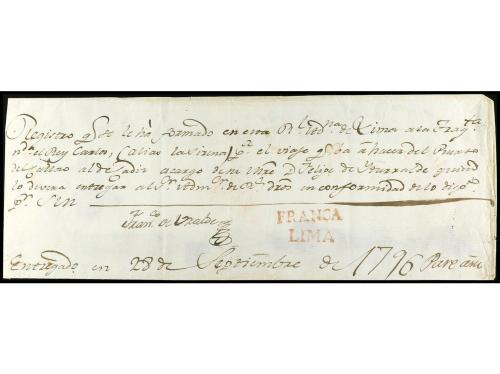 Registro q̃ se le ha formado en esta Rl. Adna. de Lima a la Fragta.
nda. el Rey Carlos, (alias la Sirena) pa. el viaje q̃ va a hacer del Puerto
de Callao al de Cadiz a cargo de su Mre. Dn. Felipe de Iturralde quien
lo devera entregar al Sr. Admor. de Rs. Dros. en conformidad de lo disp.
pr. S.M.
Franco. de
FRANCA
LIMA
Entregado en 28 de Septiembre de 1796